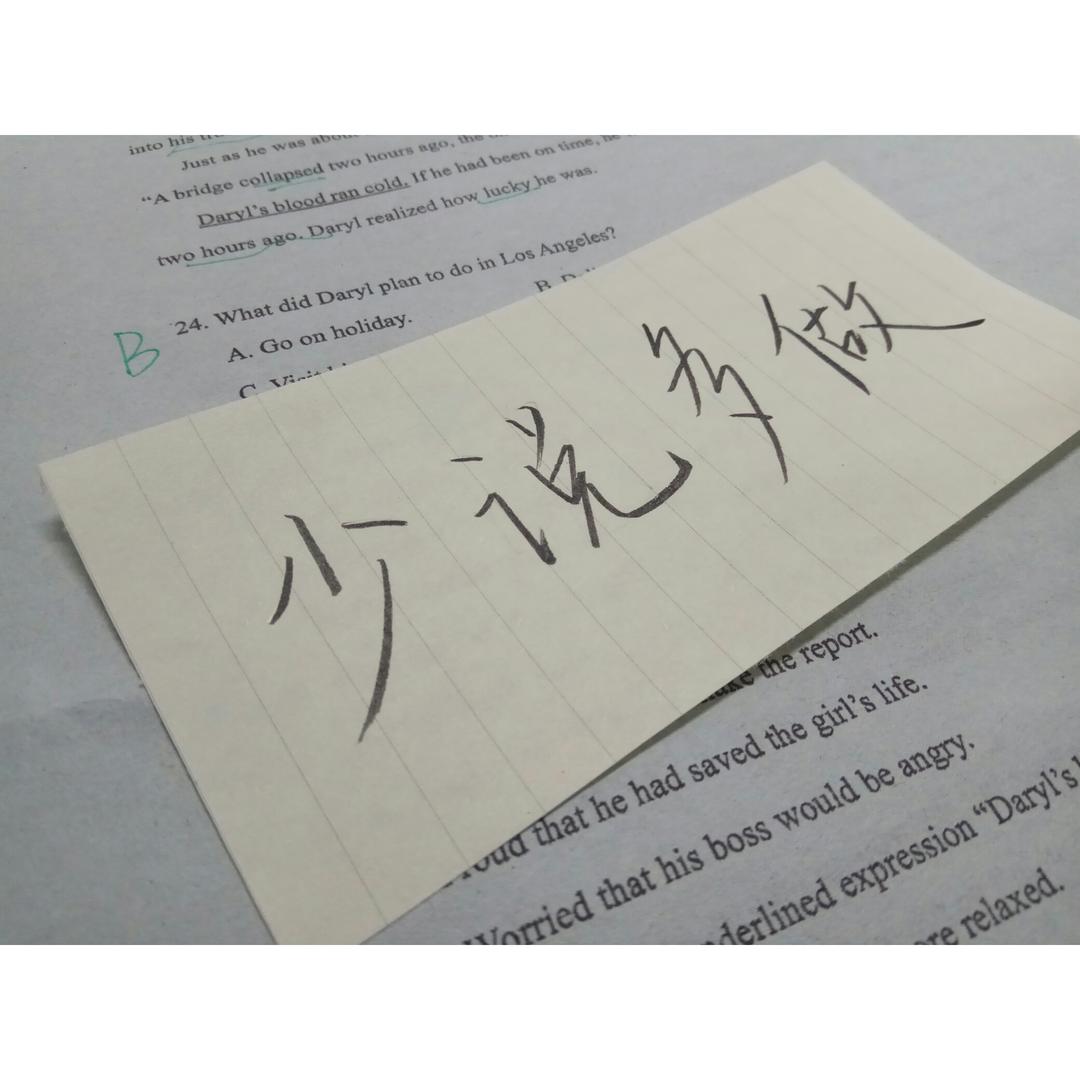 into his
Just as he was about
"A bridge collapsed two hours ago, the
Daryl's blood ran cold. If he had been on time, he
two hours ago. Daryl realized how lucky he was.
B 24. What did Daryl plan to do in Los Angeles?
A. Go on holiday.
B.
C. Visit
少说多做
the report.
that he had saved the girl's life.
Worried that his boss would be angry.
expression "Daryl's
relaxed.